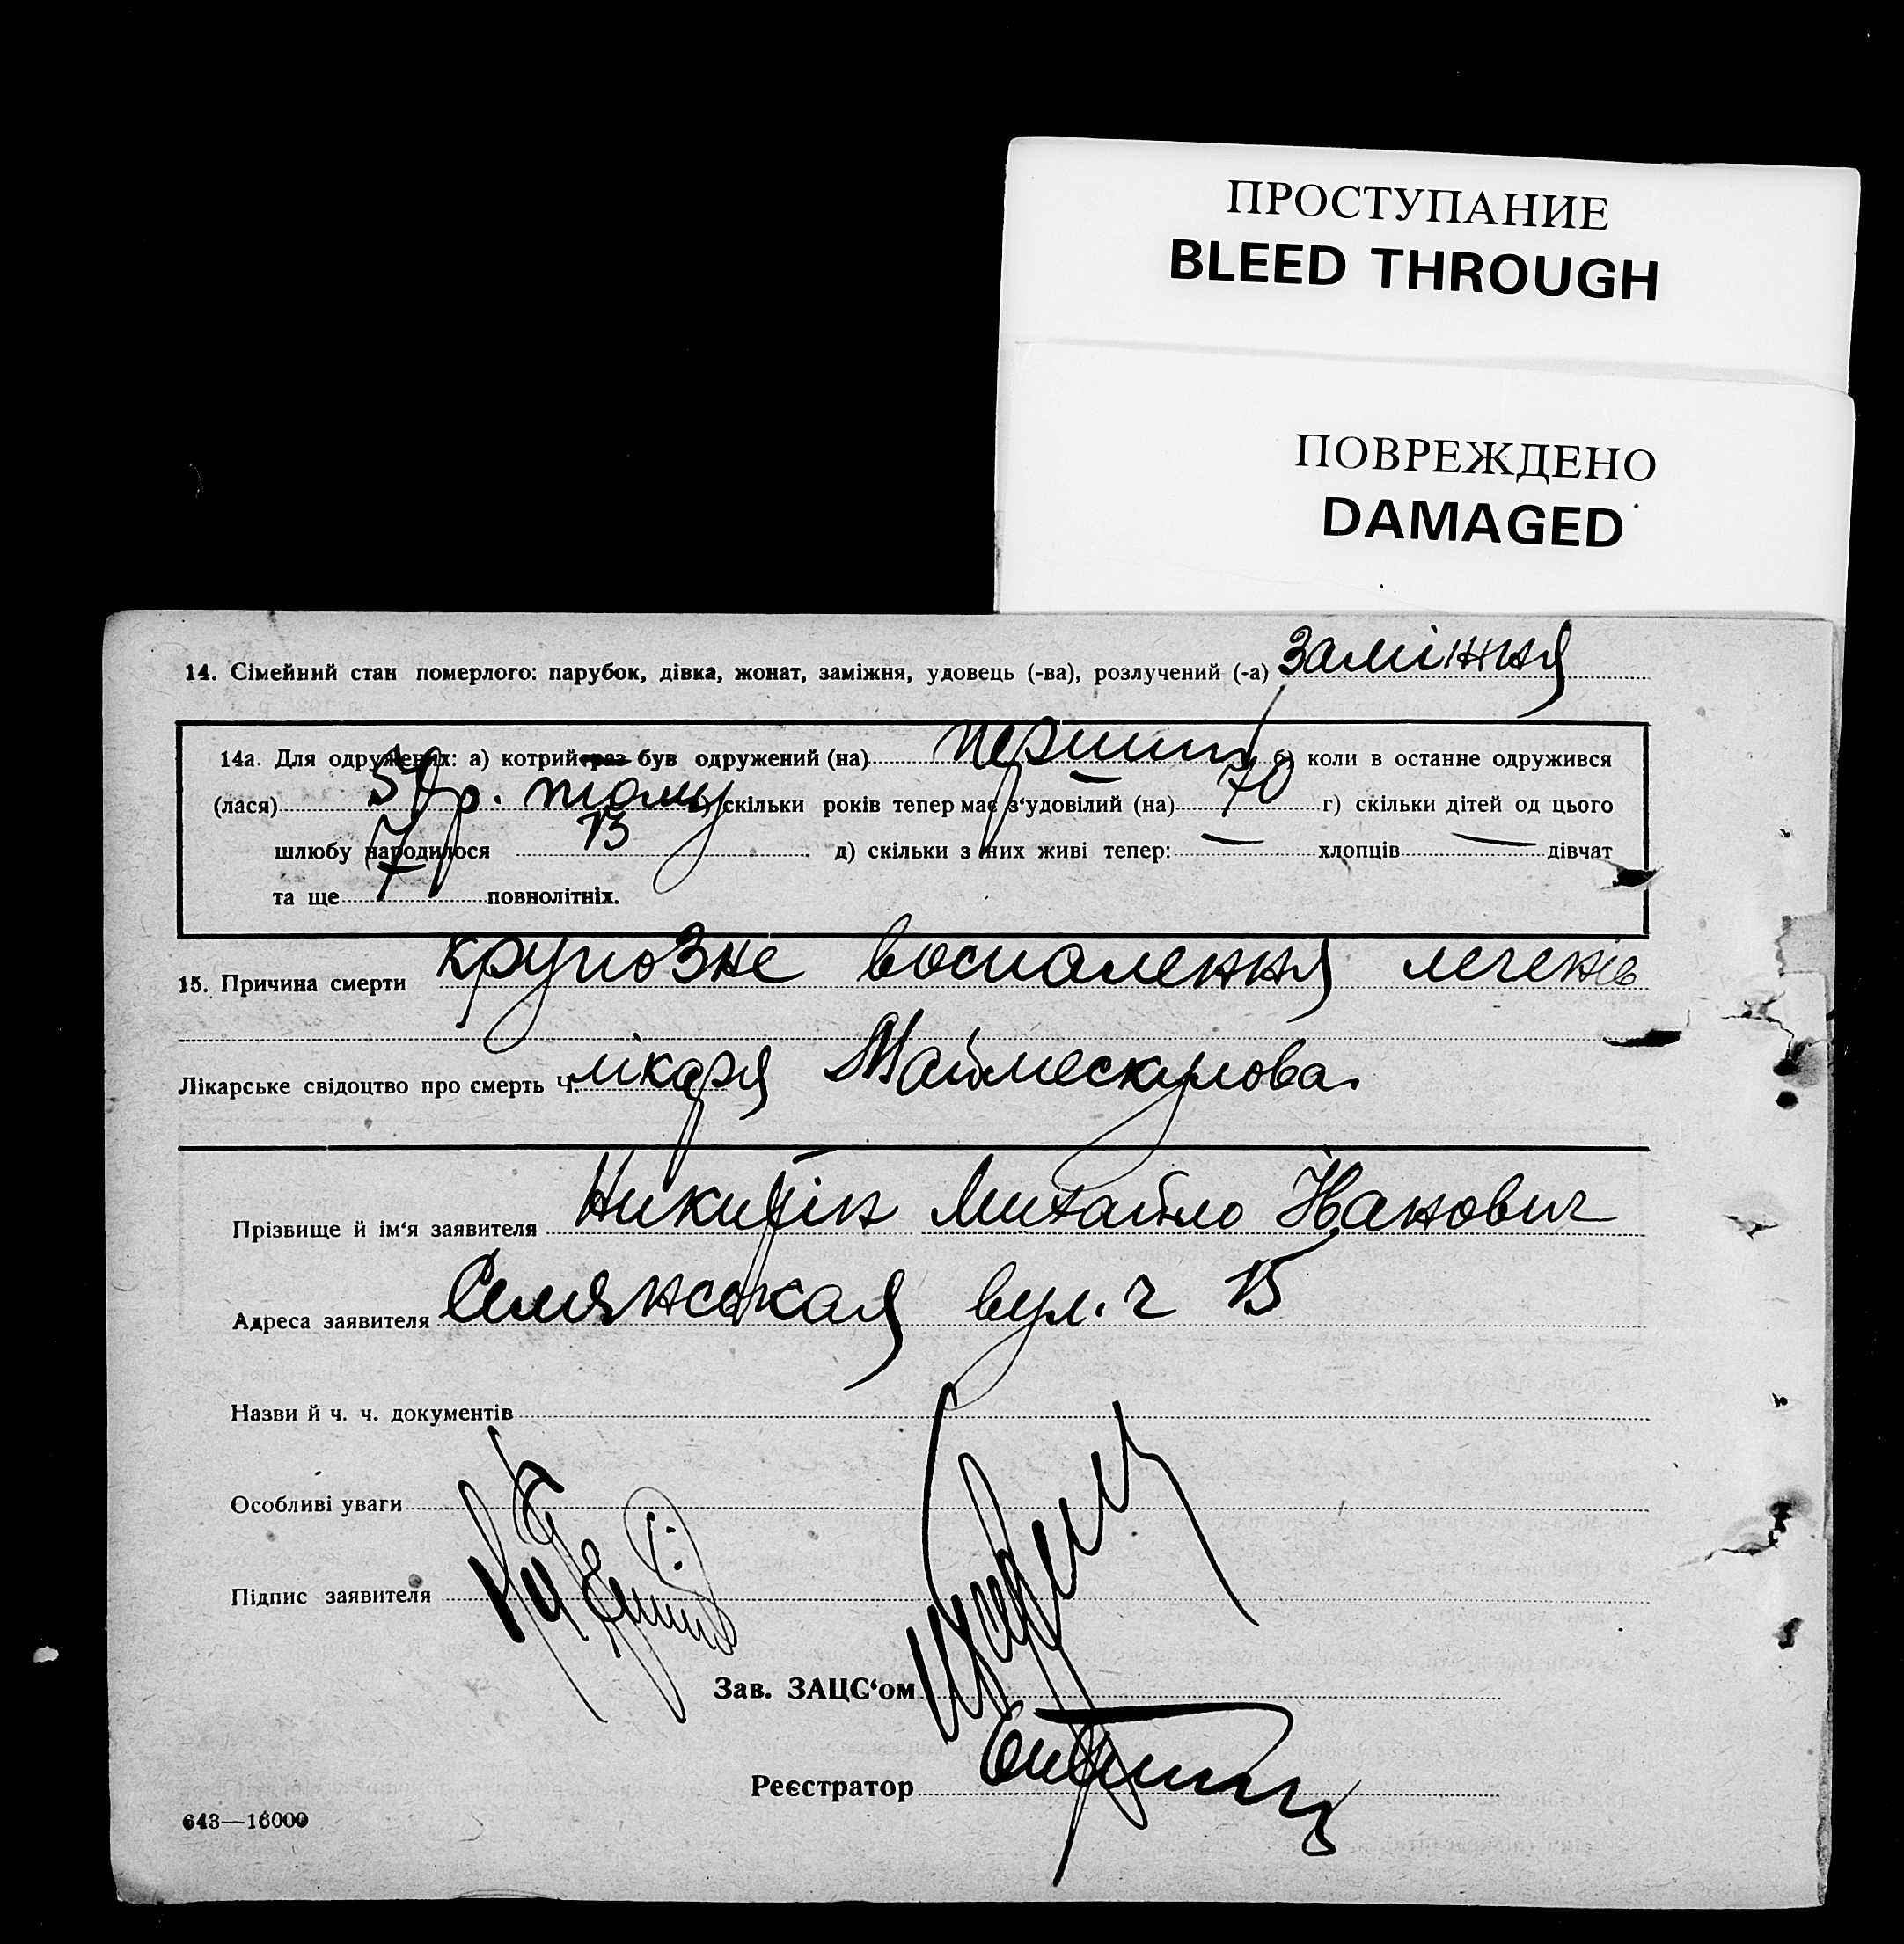 ПРОСТУПАНИЕ
BLEED THROUGH
ПОВРЕЖДЕНО
DAMAGED
14. Сімейний стан померлого: парубок, дівка, жонат, заміжня, удовець (-ва), розлучений (-а) заміжня
14а. Для одружених: а) котрий раз був одружений (на) перший б) коли в останне одружився
(лася) р. тому скільки років тепер має з‘удовілий (на) 70 г) скільки дітей од цього
шлюбу народилося 13 д) скільки з них живі тепер: — хлопців — дівчат
та ще 7 повнолітніх.
15. Причина смерти крупозне воспалення легенів
Лікарське свідоцтво про смерть Ч. лікаря Маймескулова.
Прізвище й ім‘я заявителя Михайло Іванович
Адреса заявителя вул. ч 15
Назви й ч. ч. документів
Особливі уваги
Підпис заявителя
Зав. ЗАЦС‘ом
Реєстратор
643—16000